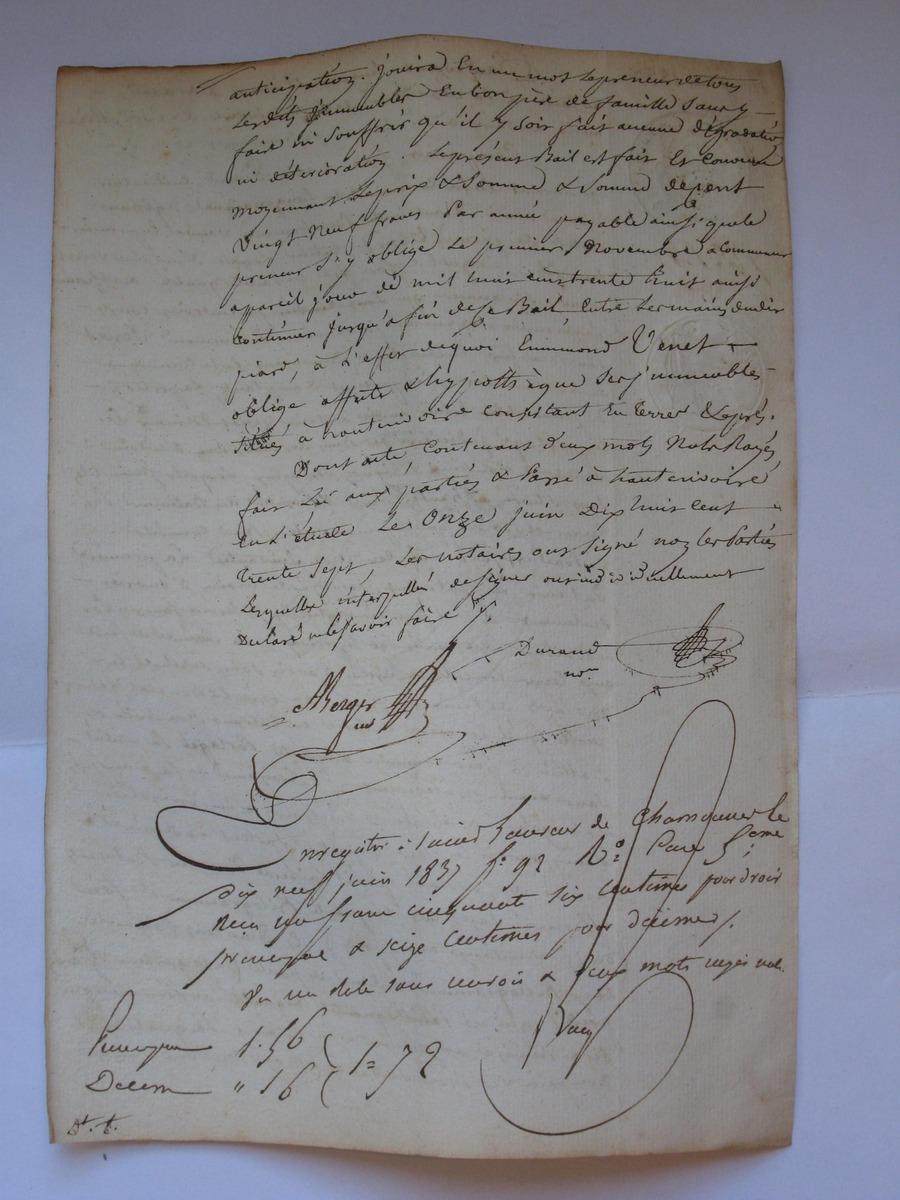 anticipation. jouira En un mot le preneur de tous
Lesdits jmmeubles En bon père de famille sans y
faire ni souffrir qu'il y soit fait aucune dégradation
ni détérioration. Le présent Bail est fait Et Convenu
moyennant Le prix & Somme & Somme de
Vingt Neuf francs Par année payable ainsi que le
preneur s'y oblige Le premier Novembre a Commencer
a pareil jour de mil huit cents trente huit ainsi
Continuer jusqu'a fin de ce Bail Entre Les mains dudit
piard, à L'effet de quoi Emmond Venet
oblige affecte & hypothèque Ses jmmeubles
Situés à hauterivoire Consistant En terres & prés.
Dont acte Contenant deux mots Nuls Rayés
fait Lu aux parties & Passé à hauterivoire
En L'étude Le Onze juin Dix huit cent
trente sept, Les notaires ont signé non les Parties
Lesquelles interpellées de signer ont individuellement
Déclaré ne le savoir faire /.
Durand
nore
ABerger
nre
Enregistré à Saint Laurent de Chamousset le
Dix neuf juin 1837 fo. 92 Ro. Case 5eme
Reçu un franc cinquante six Centimes pour droit
principal & seize Centimes pour décime /.
Vu un delt sans renvois & deux mots rayés nuls.
Principal 1.56
Decime " 16 } 1= 72
Dt. t.